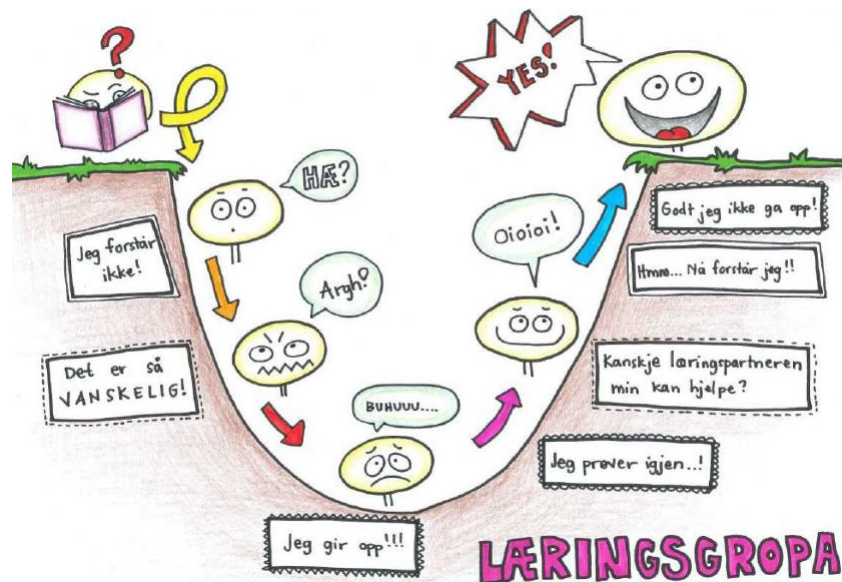 ?
YES!
HÆ?
Jeg forstår
ikke!
Argh!
Det er så
VANSKELIG!
BUHUUU....
Jeg gir opp!!!
Jeg prøver igjen..!
Kanskje læringspartneren
min kan hjelpe?
Oioioi!
Hmm... Nå forstår jeg!!
Godt jeg ikke ga opp!
LÆRINGSGROPA